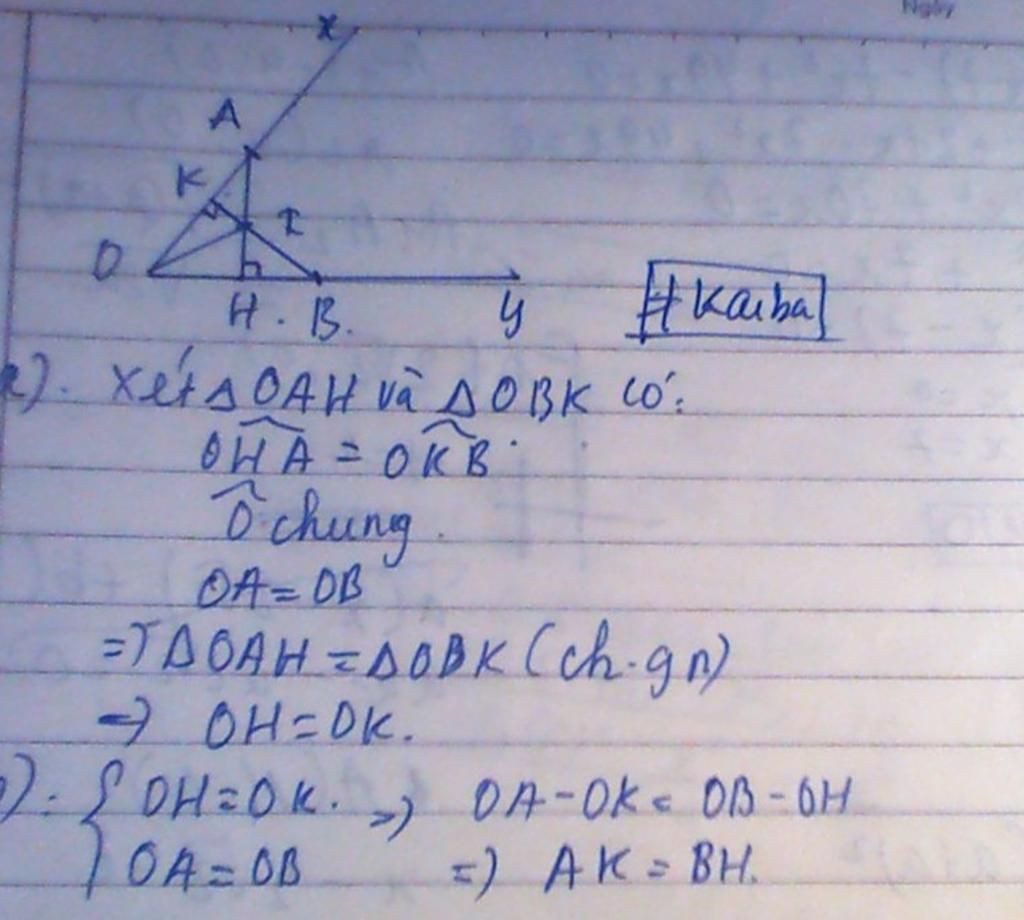 Ngày
x
A
K
I
O
H . B.
y
#Kaiba
a). Xét △OAH và △OBK có:
OĤA = OK̂B
Ô chung.
OA = OB
=> △OAH = △OBK (ch.gn)
=> OH = OK.
b). { OH = OK. => OA - OK = OB - OH
OA = OB => AK = BH.